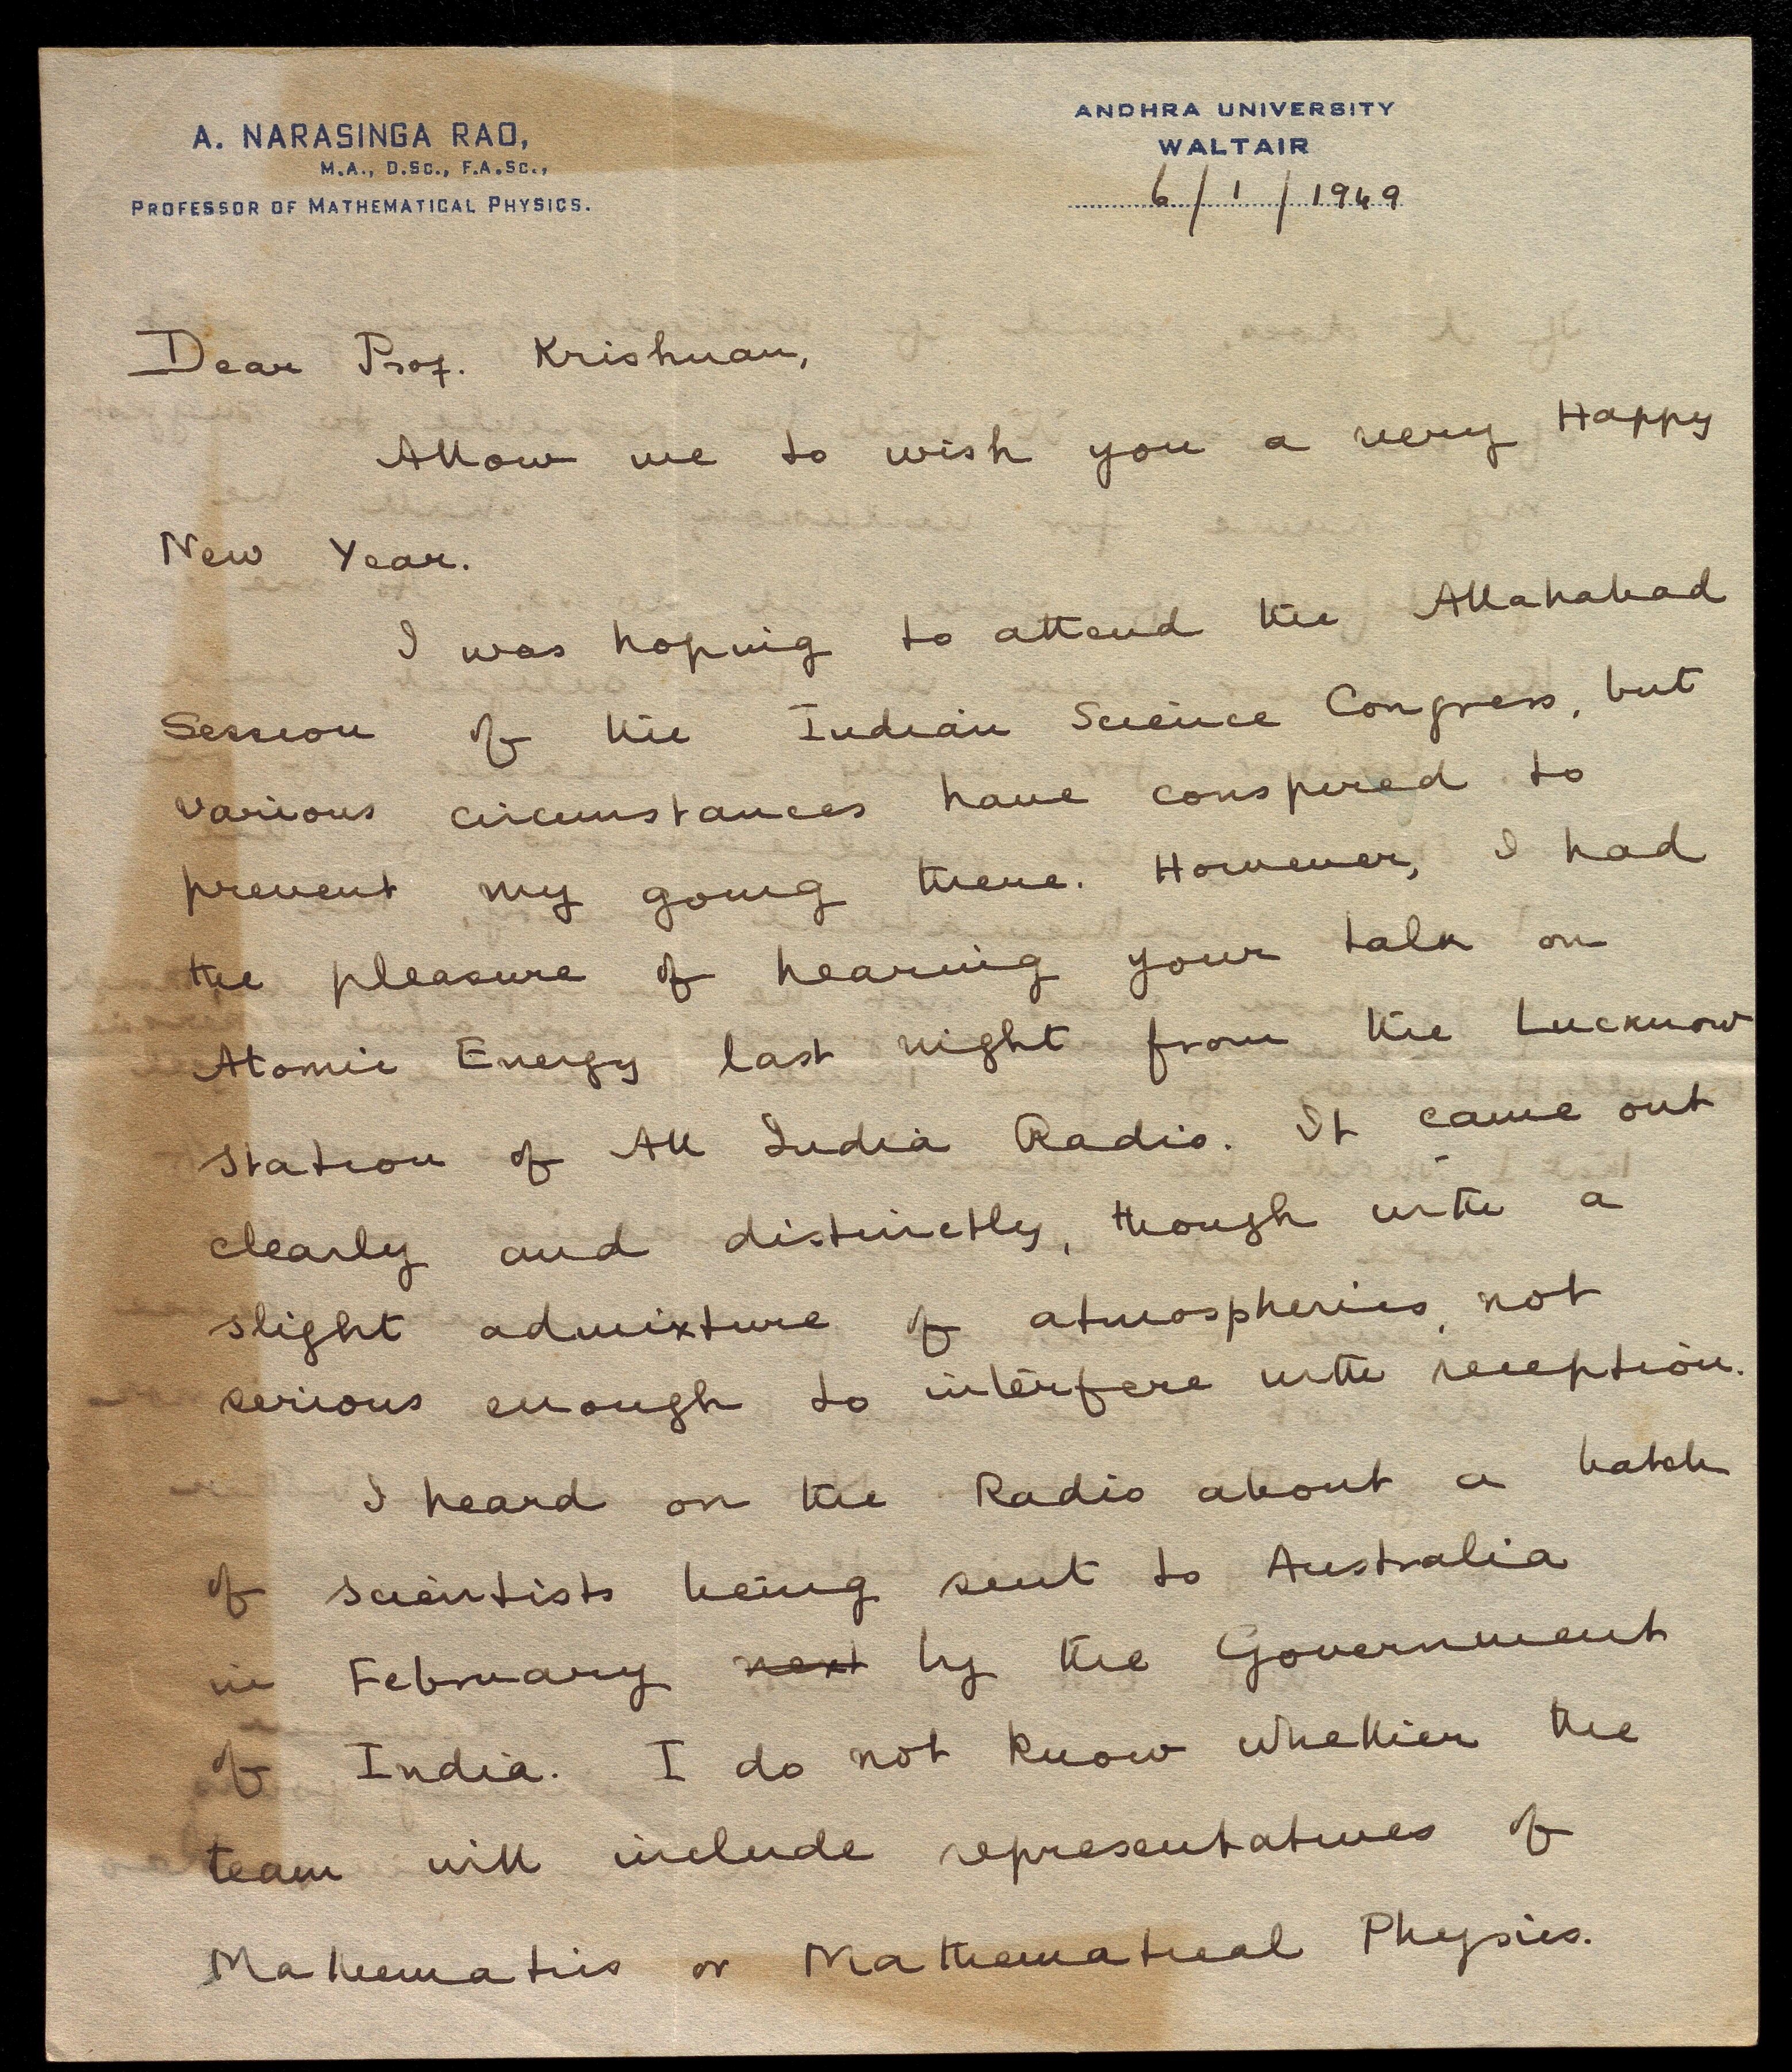 A. NARASINGA RAO,
M.A., D.Sc., F.A.Sc.,
PROFESSOR OF MATHEMATICAL PHYSICS.
ANDHRA UNIVERSITY
WALTAIR
6/1/1949
Dear Prof. Krishnan,
Allow me to wish you a very Happy
New Year.
I was hoping to attend the Allahabad
Session of the Indian Science Congress, but
various circumstances have conspired to
prevent my going there. However, I had
the pleasure of hearing your talk on
Atomic Energy last night from the Lucknow
station of All India Radio. It came out
clearly and distinctly, though with a
slight admixture of atmospherics, not
serious enough to interfere with reception.
I heard on the Radio about a batch
of scientists being sent to Australia
in February next by the Government
of India. I do not know whether the
team will include representatives of
Mathematics or Mathematical Physics.